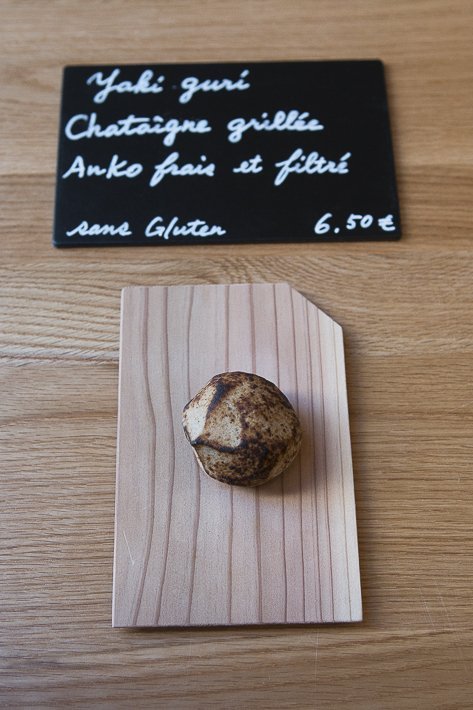 Yaki guri
Chataîgne grillée
Anko frais et filtré
sans Gluten 6.50 €